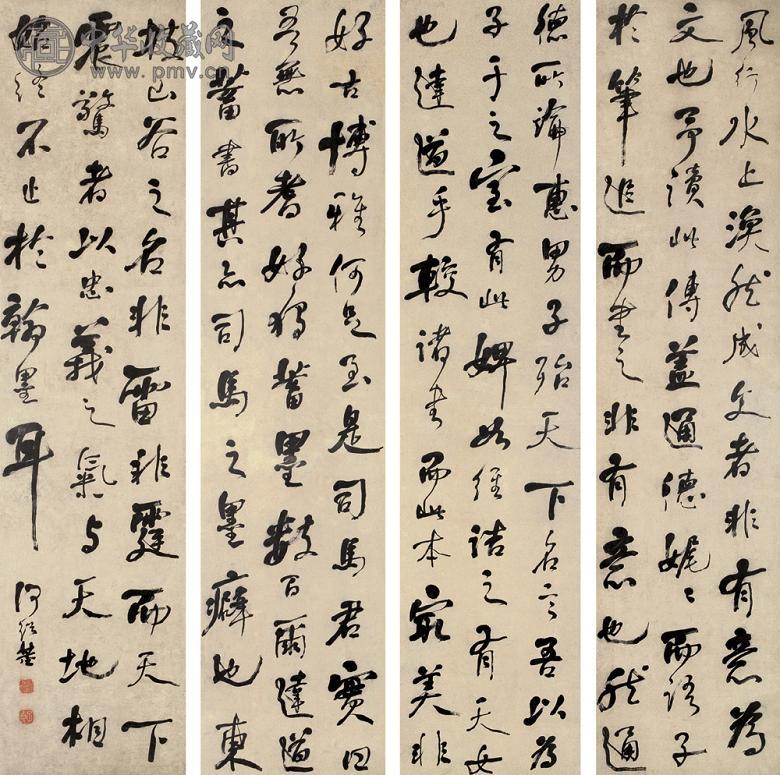 風行水上渙然成文者非有意為
文也予讀此傳蓋通德娓〻而語子
於筆追而書之非有意也然通
德所論惠男子殆天下名言吾以為
子于之室有此婢如經詁之有天女
也達道乎較諸書而此本最美非
好古博雅何足至是司馬君實曰
吾無所耆好獨蓄墨數百爾達道
之蓄書其亦司馬之墨癖也東
坡山谷之名非雷非霆而天下
震驚者以忠義之氣與天地相
始終不止於翰墨耳
何紹基
中华收藏网
www.pmv.cn